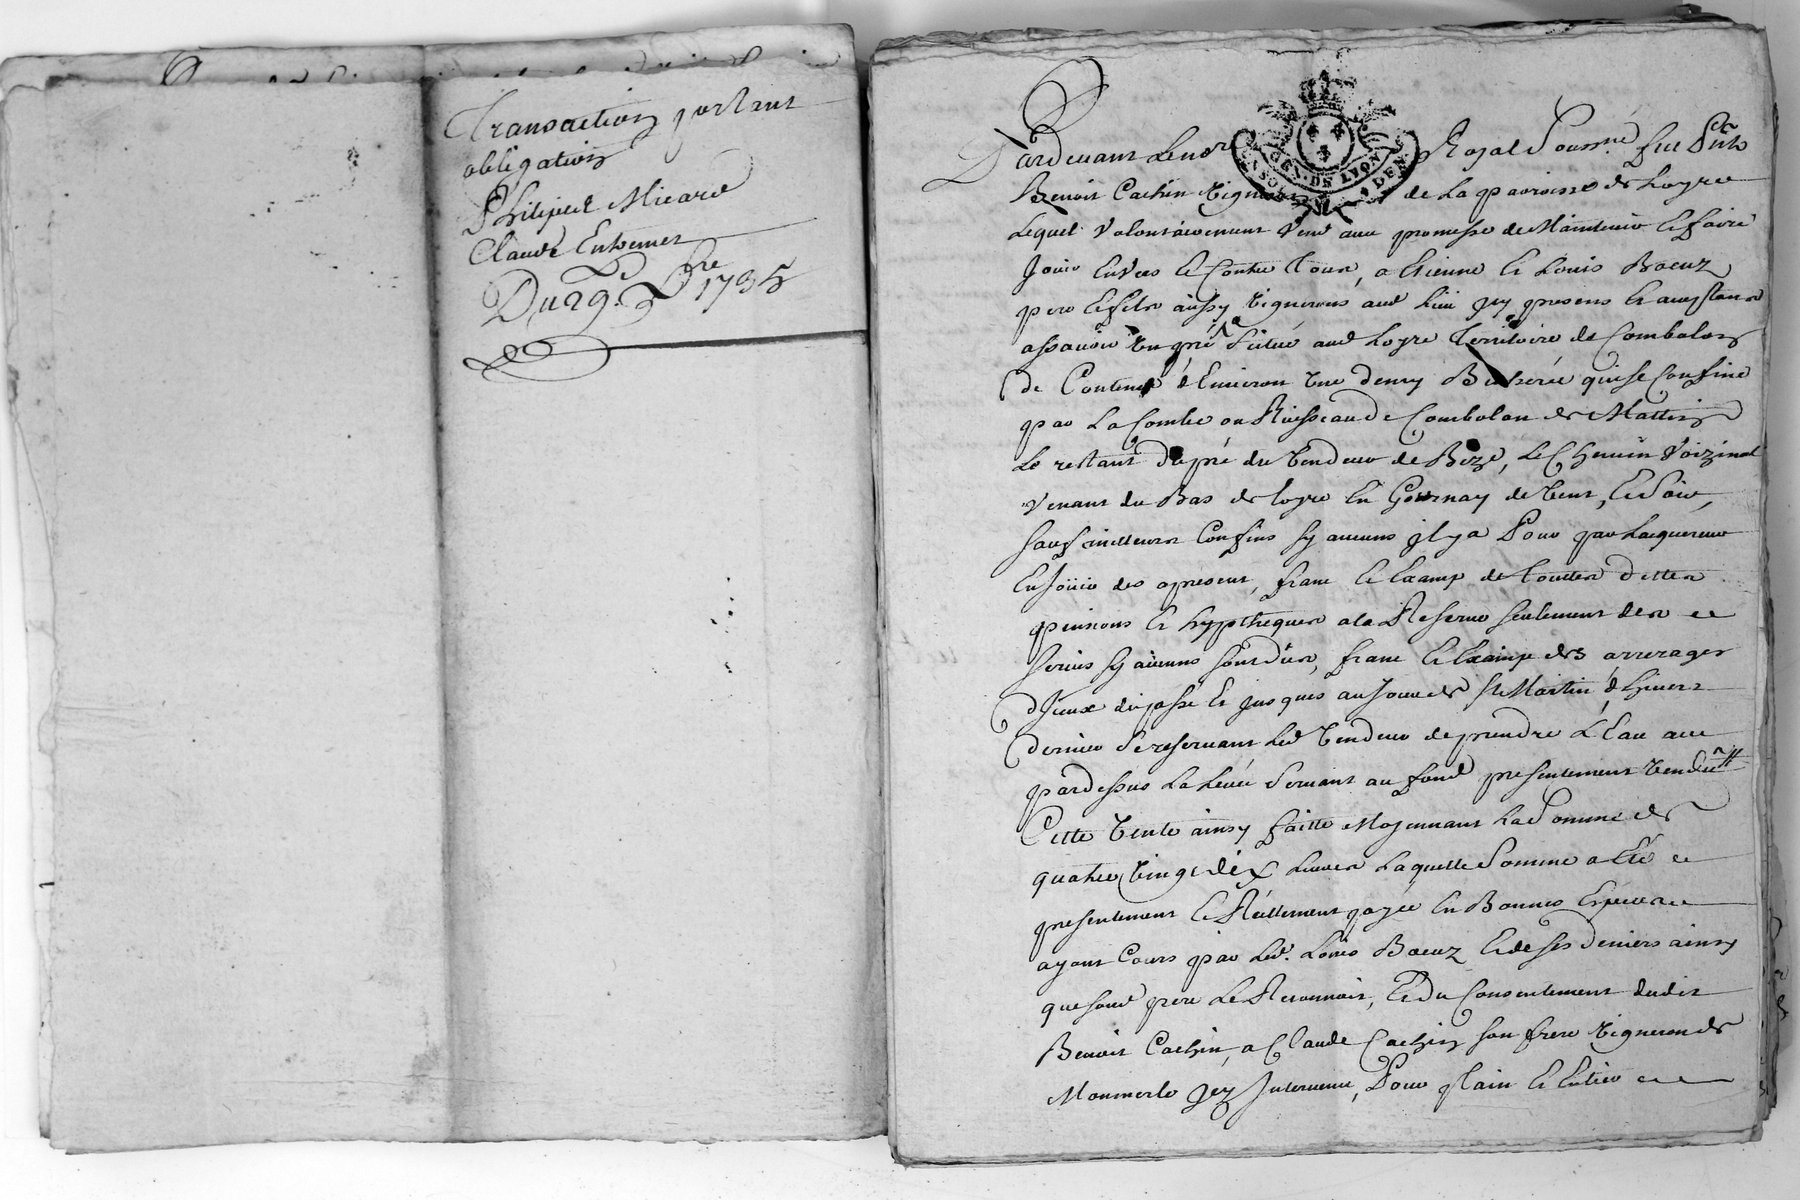 Transaction portant
obligation
Philipert Micard
Claude
Du 29. Xbre 1735
GEN. DE LYON
Pardevant le nore Royal soussné fut pnt
Benoit Cachin Vigneron de la parroisse de Loyre
Lequel volontairement vend avec promesse de Maintenir et faire
Jouir Envers et Contre Tous, a Etienne et Louis Baeuz
pere et fils aussy Vignerons aud lieu icy presens et acceptans
assavoir un pré situé aud Loyre Territoire de Combalon
de Contenue d'Environ une demy Bicherée qui se Confine
par la Combe ou Ruisseau de Combalon de Mattin
Le restant du pré du Vendeur de Bize, Le Chemin Voizinal
Venant du Bas de Loyre En Gournay de Vent, et Soir,
sauf meilleurs Confins sy aucuns il y a Pour par Lacquereur
En Jouir des apresent, franc et Exampt de touttes dettes
pensions et hypotheques a la Reserve seulement des
servis sy aucuns sont dus, franc et Exampt des arrerages
d'Iceux du passé et jusques au Jour de St Martin d'hivert
dernier se reservant led Vendeur de prendre L'Eau
pardessus La Levée servant au fond presentement vendu
Cette Vente ainsy faitte Moyennant la Somme de
quatre Vingt dix Livres Laquelle Somme a Eté
presentement et Réellement payée En Bonnes Especes
ayant Cours par led. Louis Baeuz et de ses deniers ainsy
que sond pere Le Reconnoit, et du Consentement dudit
Benoit Cachin, a Claude Cachin son frere Vigneron de
Monmerle icy Intervenu, Pour plain et Entier